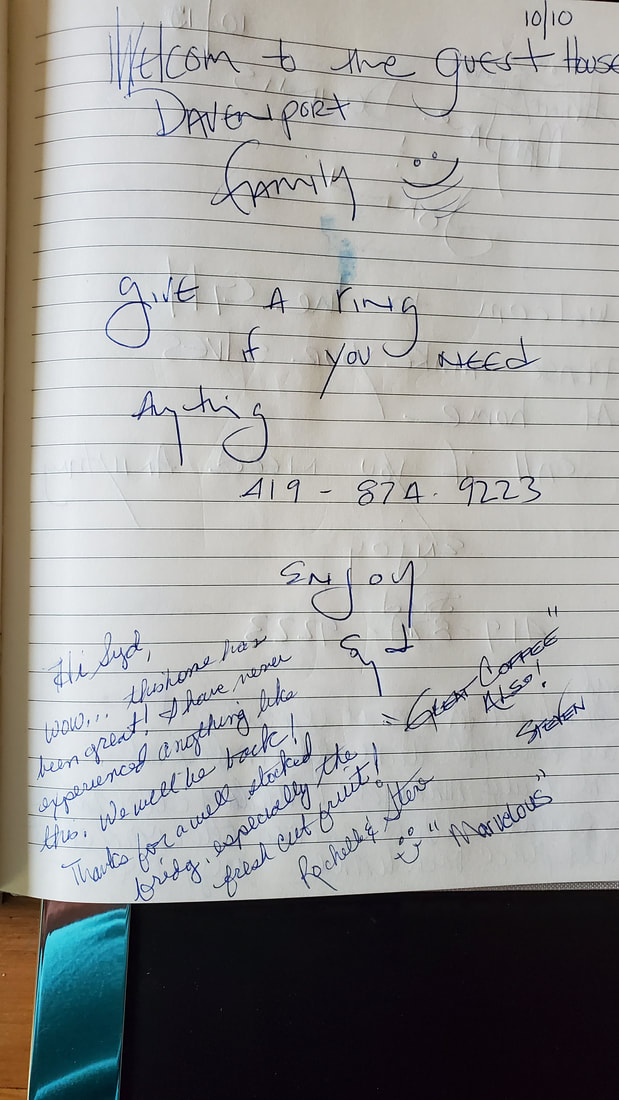 10/10
Welcom to the guest House
DAVENPORT
family
give A ring
if you NEED
Anything
419 - 874. 9223
Enjoy
Syd
Hi Syd,
wow... this home has
been great! I have never
experienced anything like
this. We will be back!
Thanks for a well stocked
fridg, especially the
fresh cut fruit!
Rochelle & Steve
"GREAT COFFEE"
ALSO!
STEVEN
"Marvelous"